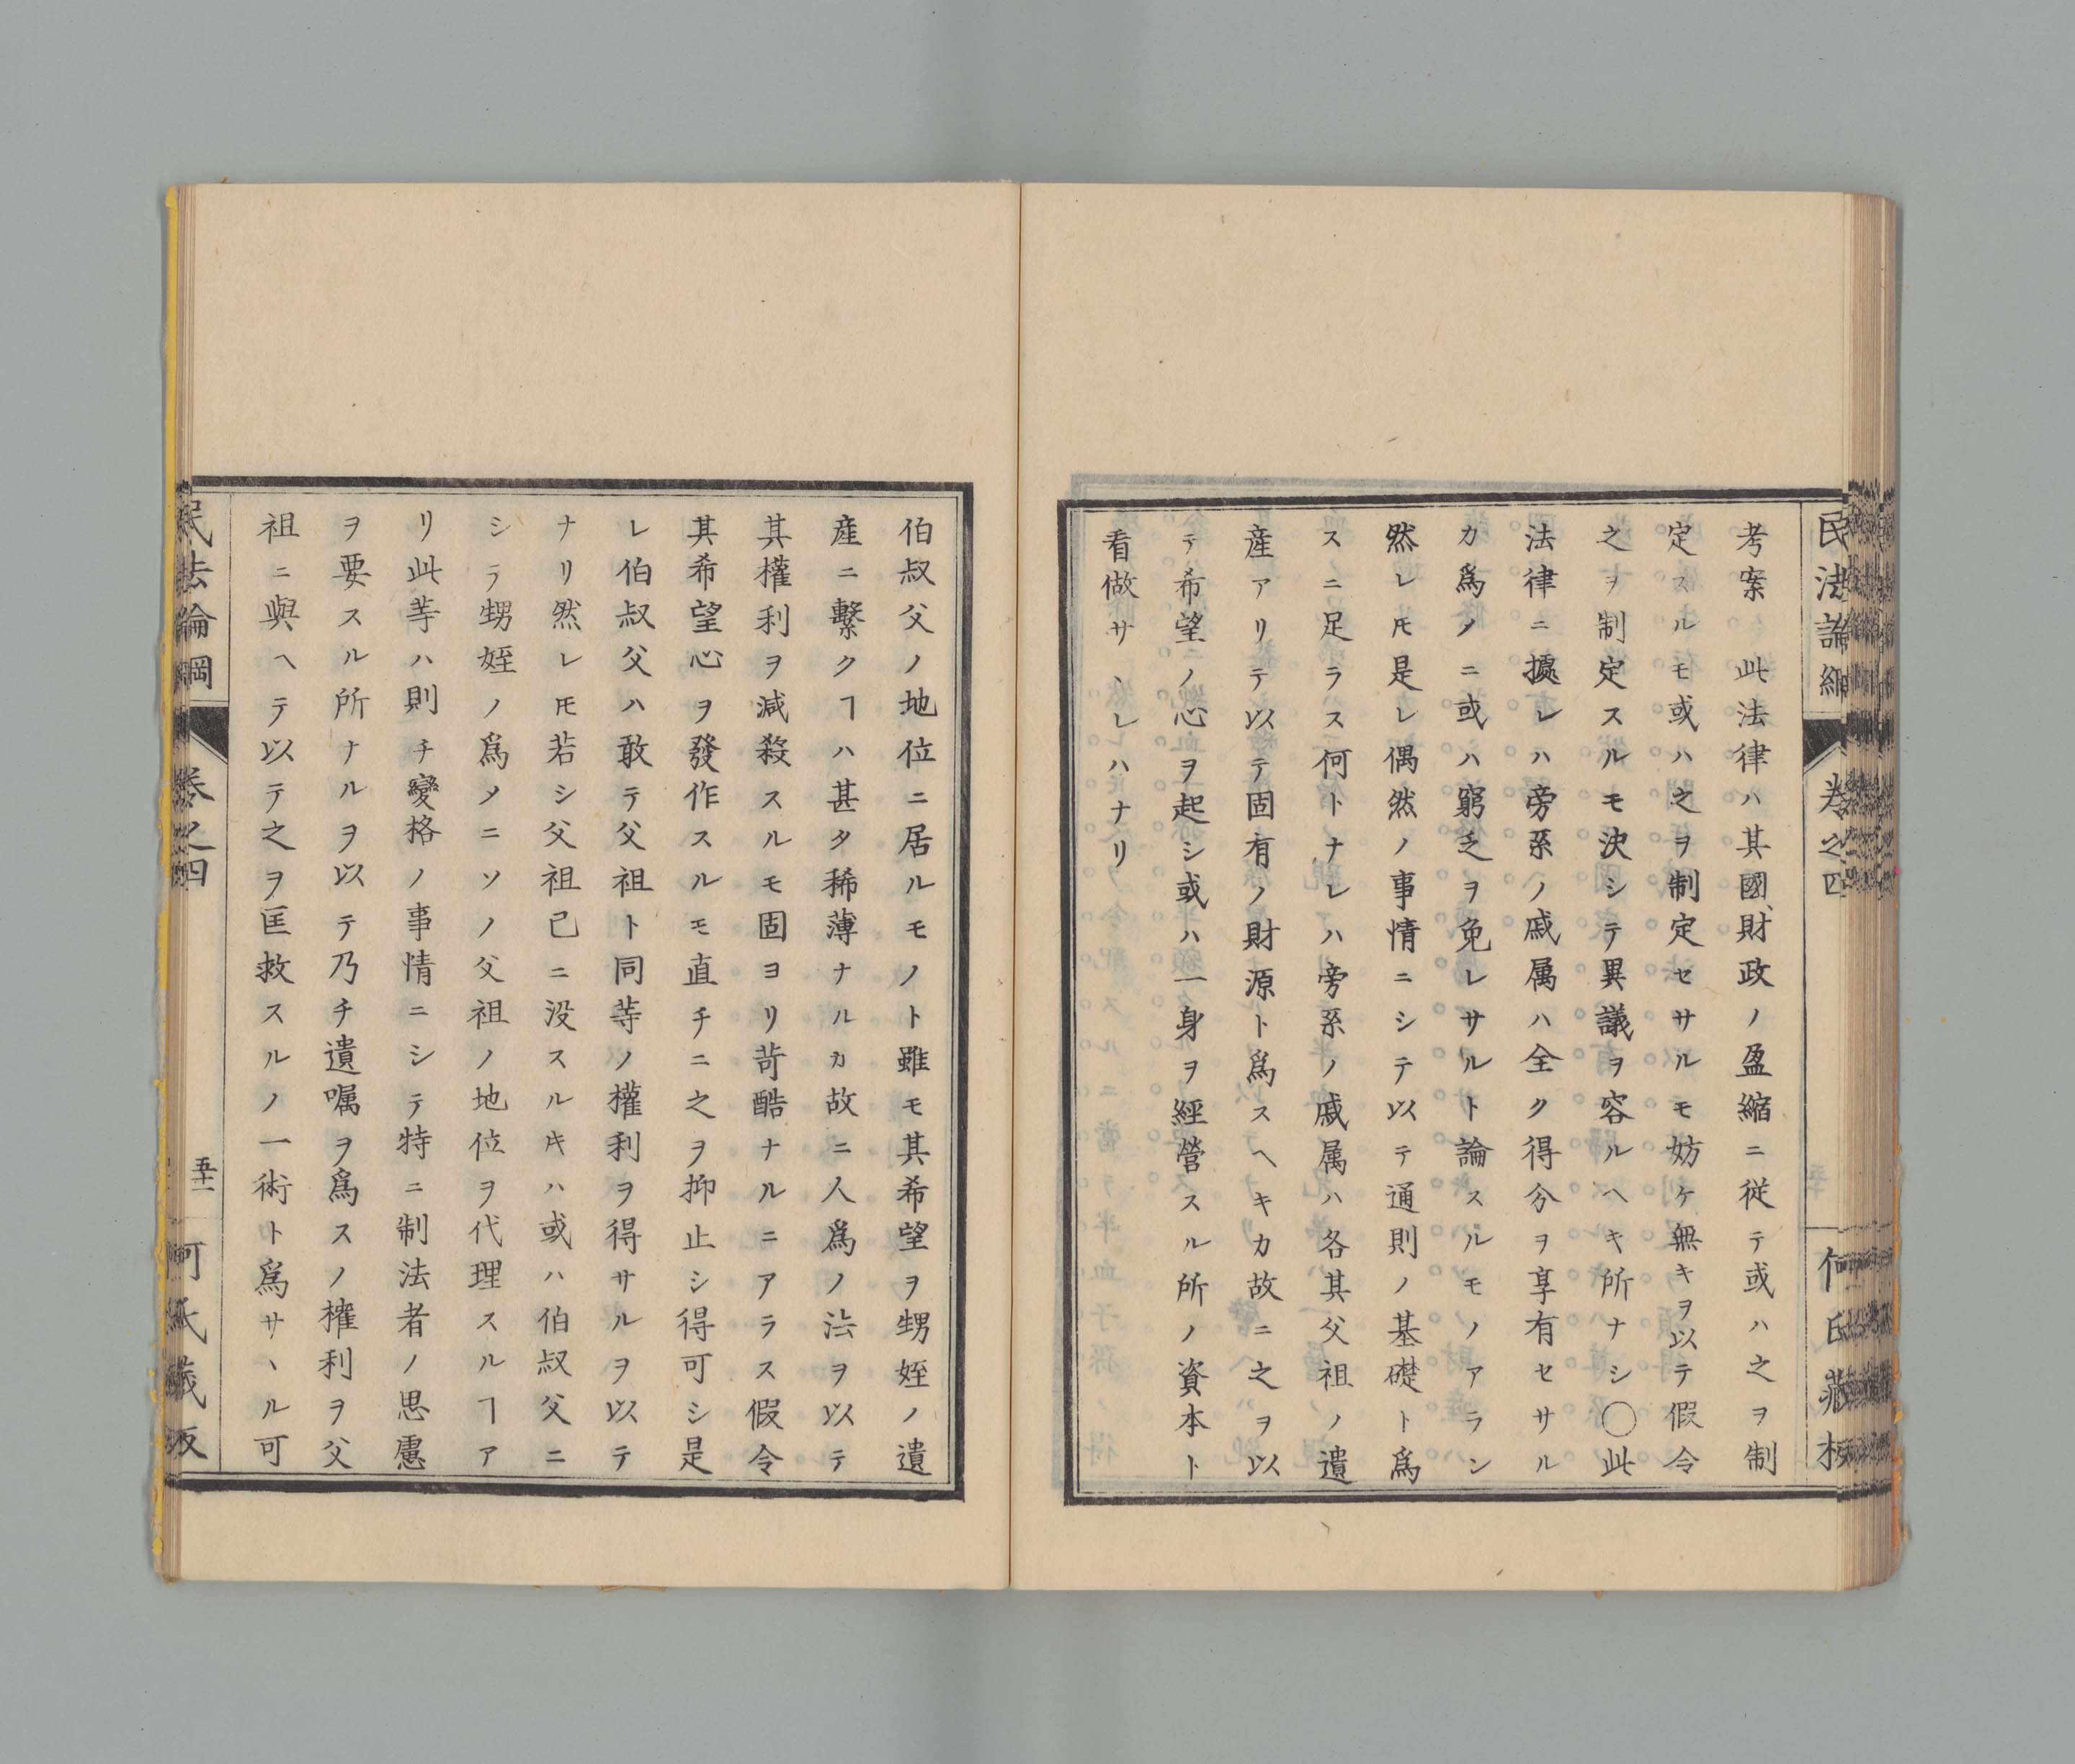 民法論綱
卷之四
何氏藏板
考案 此法律ハ其國財政ノ盈縮ニ從テ或ハ之ヲ制
定スルモ或ハ之ヲ制定セサルモ妨ケ無キヲ以テ假令
之ヲ制定スルモ決シテ異議ヲ容ルヘキ所ナシ〇此
法律ニ據レハ旁系ノ戚属ハ全ク得分ヲ享有セサル
カ爲メニ或ハ窮乏ヲ免レサルト論スルモノアラン
然レ𪜈是レ偶然ノ事情ニシテ以テ通則ノ基礎ト爲
スニ足ラス何トナレハ旁系ノ戚属ハ各其父祖ノ遺
産アリテ以テ固有ノ財源ト爲スヘキカ故ニ之ヲ以
テ希望ノ心ヲ起シ或ハ一身ヲ經營スル所ノ資本ト
看做サヽレハナリ
伯叔父ノ地位ニ居ルモノト雖モ其希望ヲ甥姪ノ遺
産ニ繫クヿハ甚タ稀薄ナルカ故ニ人爲ノ法ヲ以テ
其權利ヲ減殺スルモ固ヨリ苛酷ナルニアラス假令
其希望心ヲ發作スルモ直チニ之ヲ抑止シ得可シ是
レ伯叔父ハ敢テ父祖ト同等ノ權利ヲ得サルヲ以テ
ナリ然レ𪜈若シ父祖已ニ没スル𪜇ハ或ハ伯叔父ニ
シテ甥姪ノ爲メニソノ父祖ノ地位ヲ代理スルヿア
リ此等ハ則チ變格ノ事情ニシテ特ニ制法者ノ思慮
ヲ要スル所ナルヲ以テ乃チ遺嘱ヲ爲スノ權利ヲ父
祖ニ與ヘテ以テ之ヲ匡救スルノ一術ト爲サヽル可
民法論綱
卷之四
五十一
何氏藏板